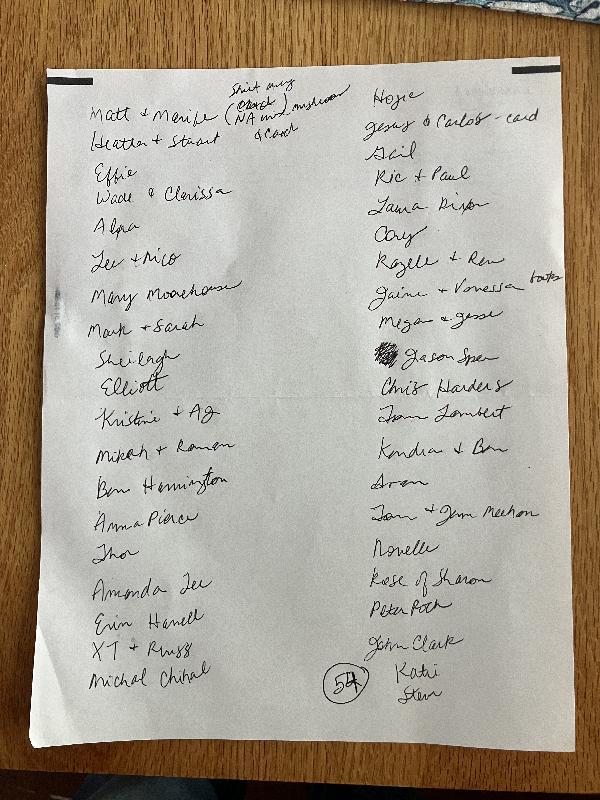 Matt & Marife (
NA
& card
Heather + Stuart
Effie
Wade & Clarissa
Alpa
Lee + Rico
Mary Moorehouse
Mark + Sarah
Sheilagh
Elliott
Kristine + AJ
Mikah + Roman
Ben Hennington
Anna Pierce
Thor
Amanda Lee
Erin Harell
XT + Russ
Michal Chihal
Hozie
Jesus & Carlos - card
Gail
Ric + Paul
Laura Dixon
Cory
Rozelle + Ren
Jaime & Vanessa
Megan & Jesse
Jason
Chris Harders
Tom Lambert
Kendra & Ben
Aran
Tom + Jenn Meehan
Novelle
Rose of Sharon
Peter Roth
John Clark
Katri
Steve
54